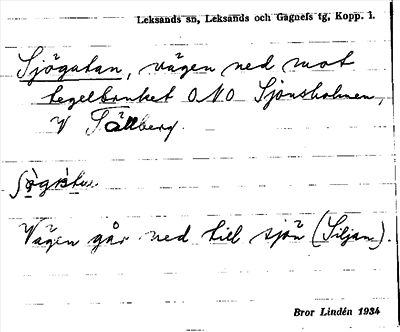 Leksands sn, Leksands och Gagnefs tg, Kopp. l.
Sjögatan, vägen ned mot
tegelbruket ONO Sjönsholmen,
V Tällberg.
Vägen går ned till sjön (Siljan).
Bror Lindén 1934